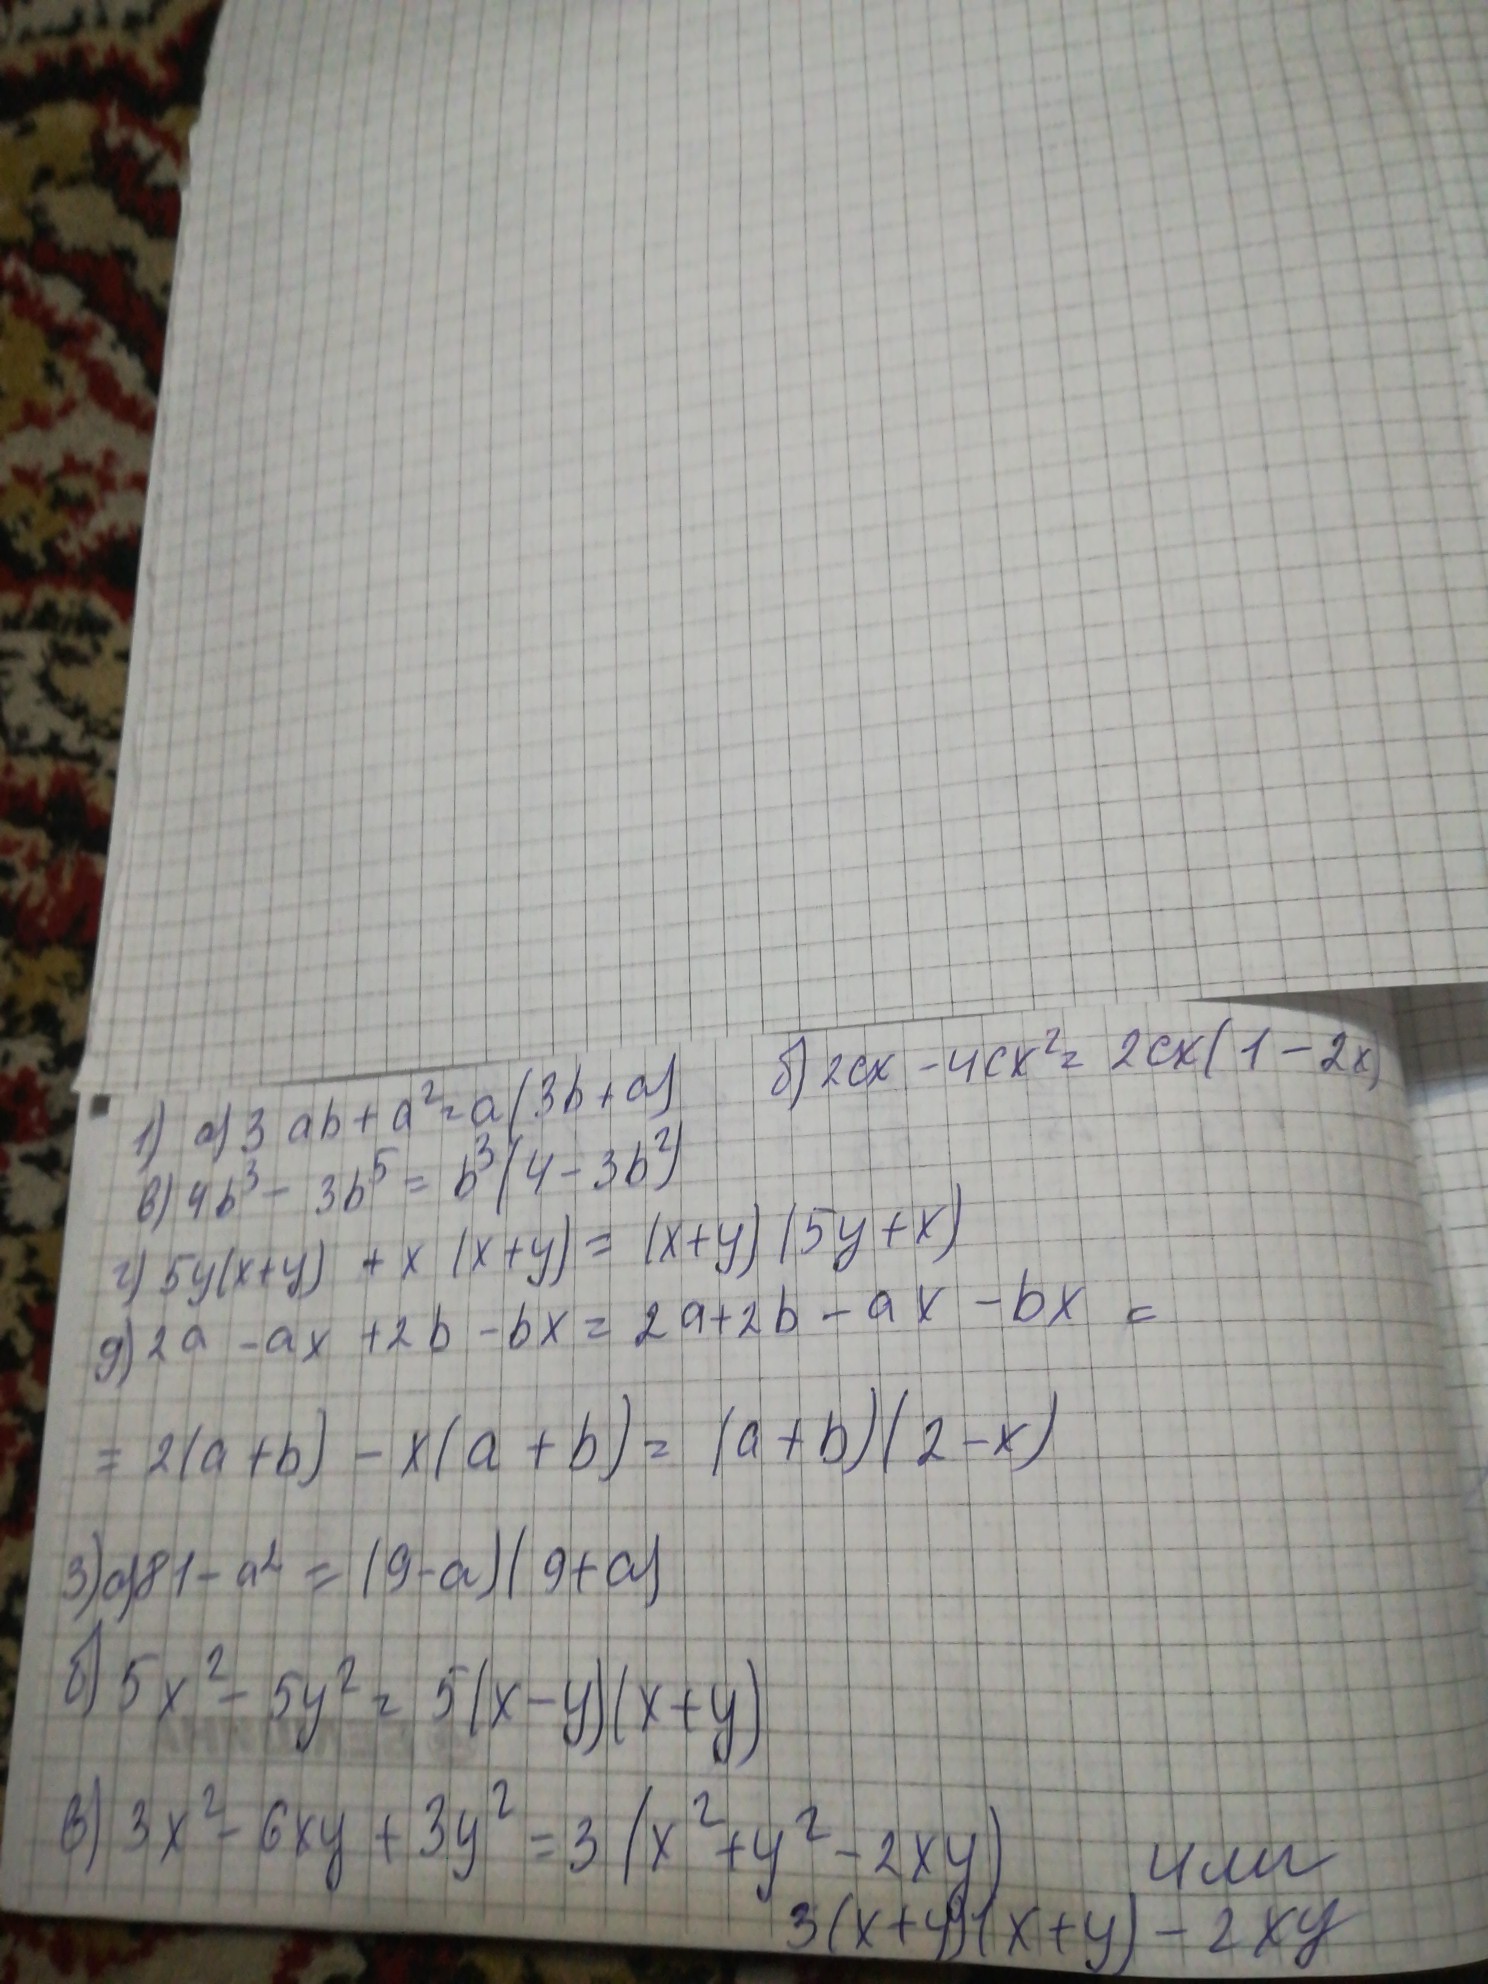 1) а) 3ab + a² = a(3b + a)
б) 2cx - 4cx² = 2cx(1 - 2x)
в) 4b³ - 3b⁵ = b³(4 - 3b²)
г) 5y(x+y) + x(x+y) = (x+y)(5y+x)
д) 2a - ax + 2b - bx = 2a + 2b - ax - bx =
= 2(a+b) - x(a+b) = (a+b)(2-x)
3) а) 81 - a² = (9-a)(9+a)
б) 5x² - 5y² = 5(x-y)(x+y)
в) 3x² - 6xy + 3y² = 3(x² + y² - 2xy) или
3(x+y)(x+y) - 2xy